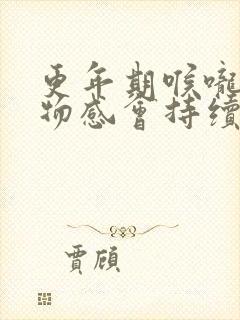 更年期喉嚨
物感會持續
賈頎